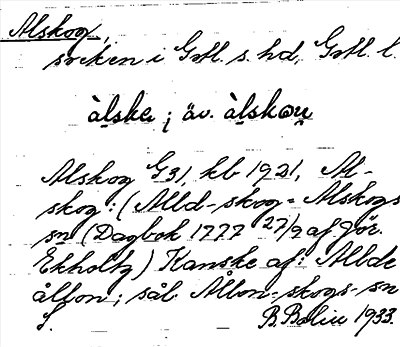 Alskog,
socken i Gotl. s. hd, Gotl. l.
àlske ; äv. àlskou
Alskog G31, kb 1921, Al-
skog : (Alld-skog = Alskogs
sn (Dagbok 1777 27/9 af Jör.
Ekholtz) Kanske af: Allde
ållon; sål. Allon-skogs-sn
B. Bolin 1933.